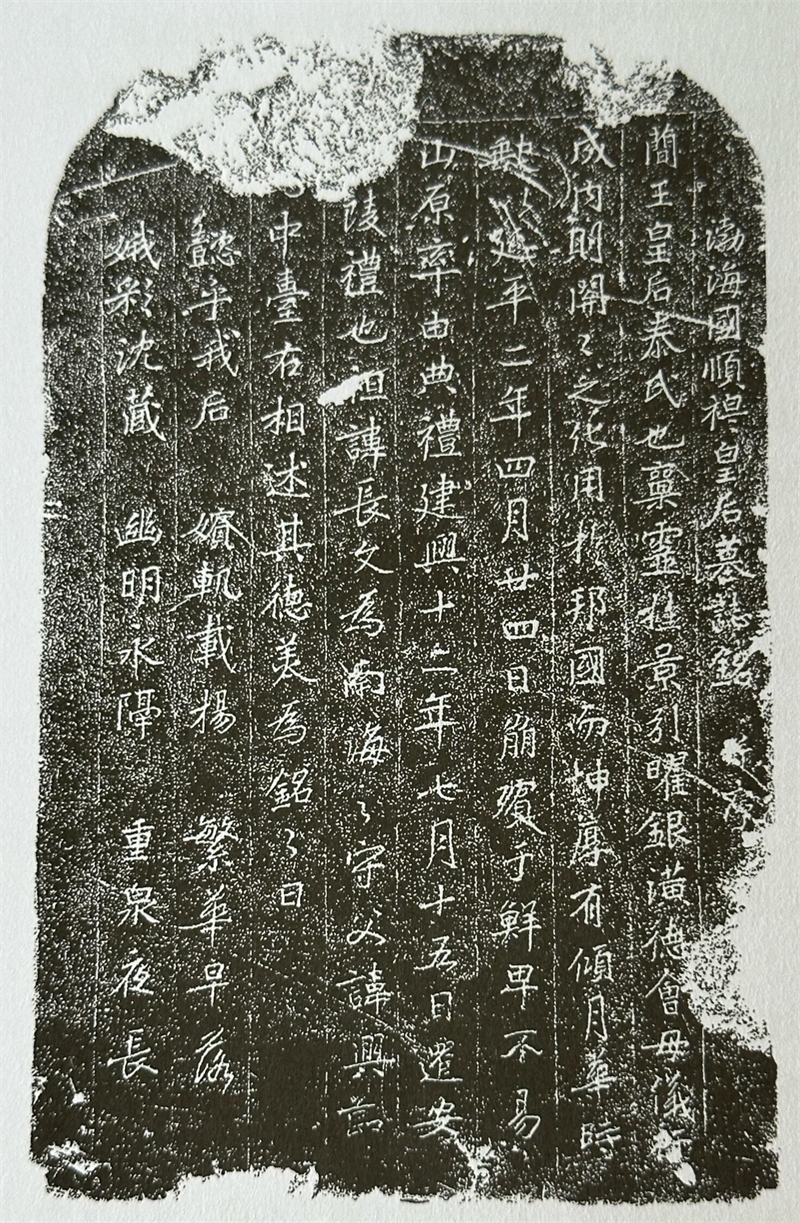 渤海國順穆皇后墓誌銘
簡王皇后泰氏也稟靈樞景引曜銀潢德會母儀
成內則開〻之化用於邦國而坤厚有傾月華時
缺建平二年四月廿四日崩殯于鮮卑不易
山原率由典禮建興十二年七月十五日遷安
陵禮也祖諱長文為南海〻守父諱興節
中臺右相述其德美為銘〻曰
懿乎我后 嬪軌載揚 繁華早落
娥影沈藏 幽明永隔 重泉夜長